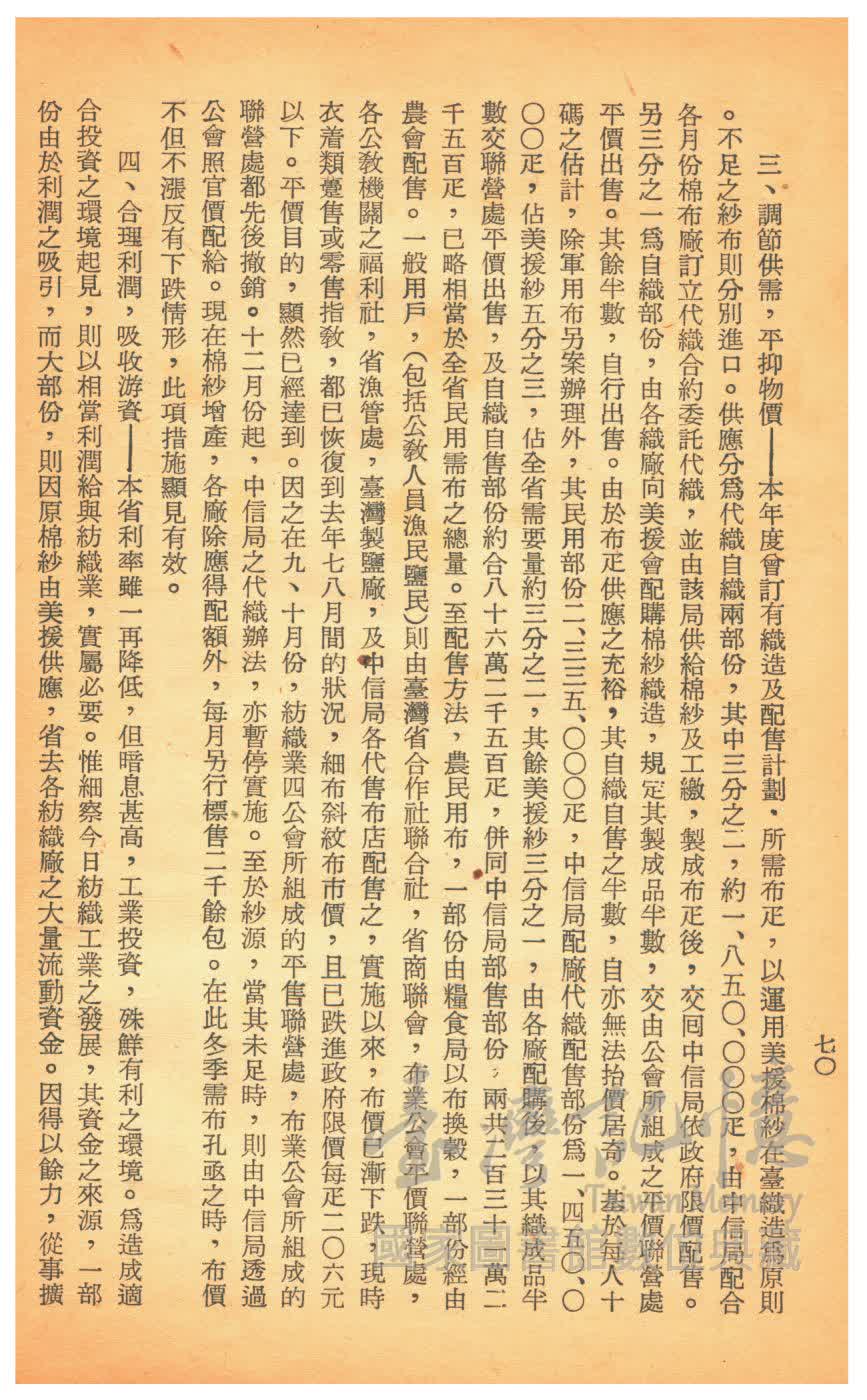 七〇
三、調節供需，平抑物價——本年度曾訂有織造及配售計劃．所需布疋，以運用美援棉紗在臺織造爲原則
。不足之紗布則分別進口。供應分爲代織自織兩部份，其中三分之二，約一、八五〇、〇〇〇疋，由中信局配合
各月份棉布廠訂立代織合約委託代織，並由該局供給棉紗及工繳，製成布疋後，交回中信局依政府限價配售。
另三分之一爲自織部份，由各織廠向美援會配購棉紗織造，規定其製成品半數，交由公會所組成之平價聯營處
平價出售。其餘半數，自行出售。由於布疋供應之充裕，其自織自售之半數，自亦無法抬價居奇。基於每人十
碼之估計，除軍用布另案辦理外，其民用部份二、三三五、〇〇〇疋，中信局配廠代織配售部份爲一、四五〇、〇
〇〇疋，佔美援紗五分之三，佔全省需要量約三分之二，其餘美援紗三分之一，由各廠配購後，以其織成品半
數交聯營處平價出售，及自織自售部份約合八十六萬二千五百疋，併同中信局部售部份，兩共二百三十一萬二
千五百疋，已略相當於全省民用需布之總量。至配售方法，農民用布，一部份由糧食局以布換穀，一部份經由
農會配售。一般用戶，（包括公教人員漁民鹽民）則由臺灣省合作社聯合社，省商聯會，布業公會平價聯營處，
各公教機關之福利社，省漁管處，臺灣製鹽廠，及中信局各代售布店配售之，實施以來，布價已漸下跌，現時
衣着類躉售或零售指教，都已恢復到去年七八月間的狀況，細布斜紋布市價，且已跌進政府限價每疋二〇六元
以下。平價目的，顯然已經達到。因之在九、十月份，紡織業四公會所組成的平售聯營處，布業公會所組成的
聯營處都先後撤銷。十二月份起，中信局之代織辦法，亦暫停實施。至於紗源，當其未足時，則由中信局透過
公會照官價配給。現在棉紗增產，各廠除應得配額外，每月另行標售二千餘包。在此冬季需布孔亟之時，布價
不但不漲反有下跌情形，此項措施顯見有效。
四、合理利潤，吸收游資——本省利率雖一再降低，但暗息甚高，工業投資，殊鮮有利之環境。爲造成適
合投資之環境起見，則以相當利潤給與紡織業，實屬必要。惟細察今日紡織工業之發展，其資金之來源，一部
份由於利潤之吸引，而大部份，則因原棉紗由美援供應，省去各紡織廠之大量流動資金。因得以餘力，從事擴
臺灣記憶
Taiwan Memory
國家圖書館數位典藏